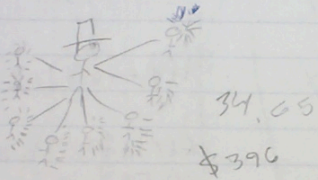 34.65
$396